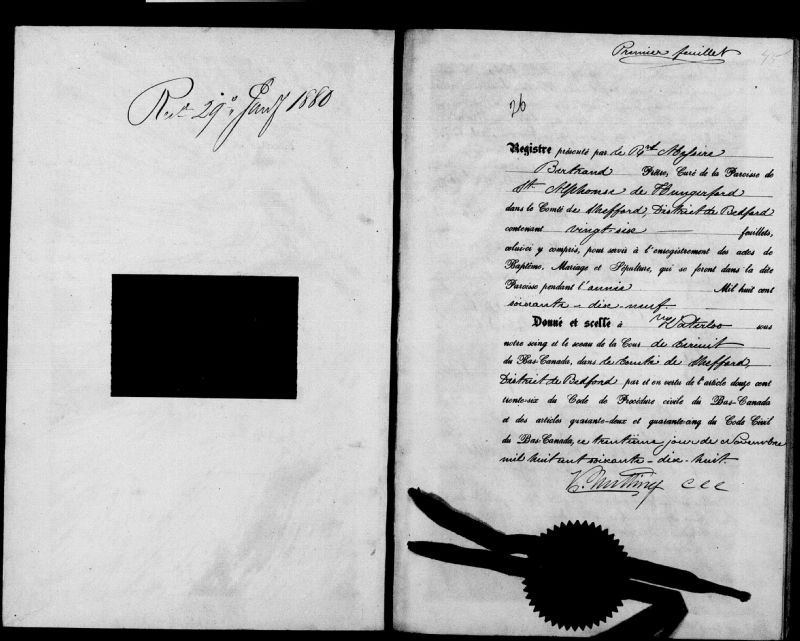 Rec. 29o Janvy 1880
Premier feuillet
45
26
Registre présenté par le Rvd Messire
Bertrand Prêtre, Curé de la Paroisse de
St. Alphonse de Hungerford
dans le Comté de Shefford, District de Bedford
contenant vingt-six feuillets,
celui-ci y compris, pour servir à l'enregistrement des actes de
Baptême, Mariage et Sépulture, qui se feront dans la dite
Paroisse pendant l'année Mil huit cent
soixante-dix-neuf.
Donné et scellé à Waterloo sous
notre seing et le sceau de la Cour de Circuit
du Bas-Canada, dans le Comté de Shefford,
District de Bedford par et en vertu de l'article douze cent
trente-six du Code de Procédure civile du Bas-Canada
et des articles quarante-deux et quarante-cinq du Code Civil
du Bas-Canada, ce trentième jour de Novembre
mil huit cent soixante-dix-huit.
C C C